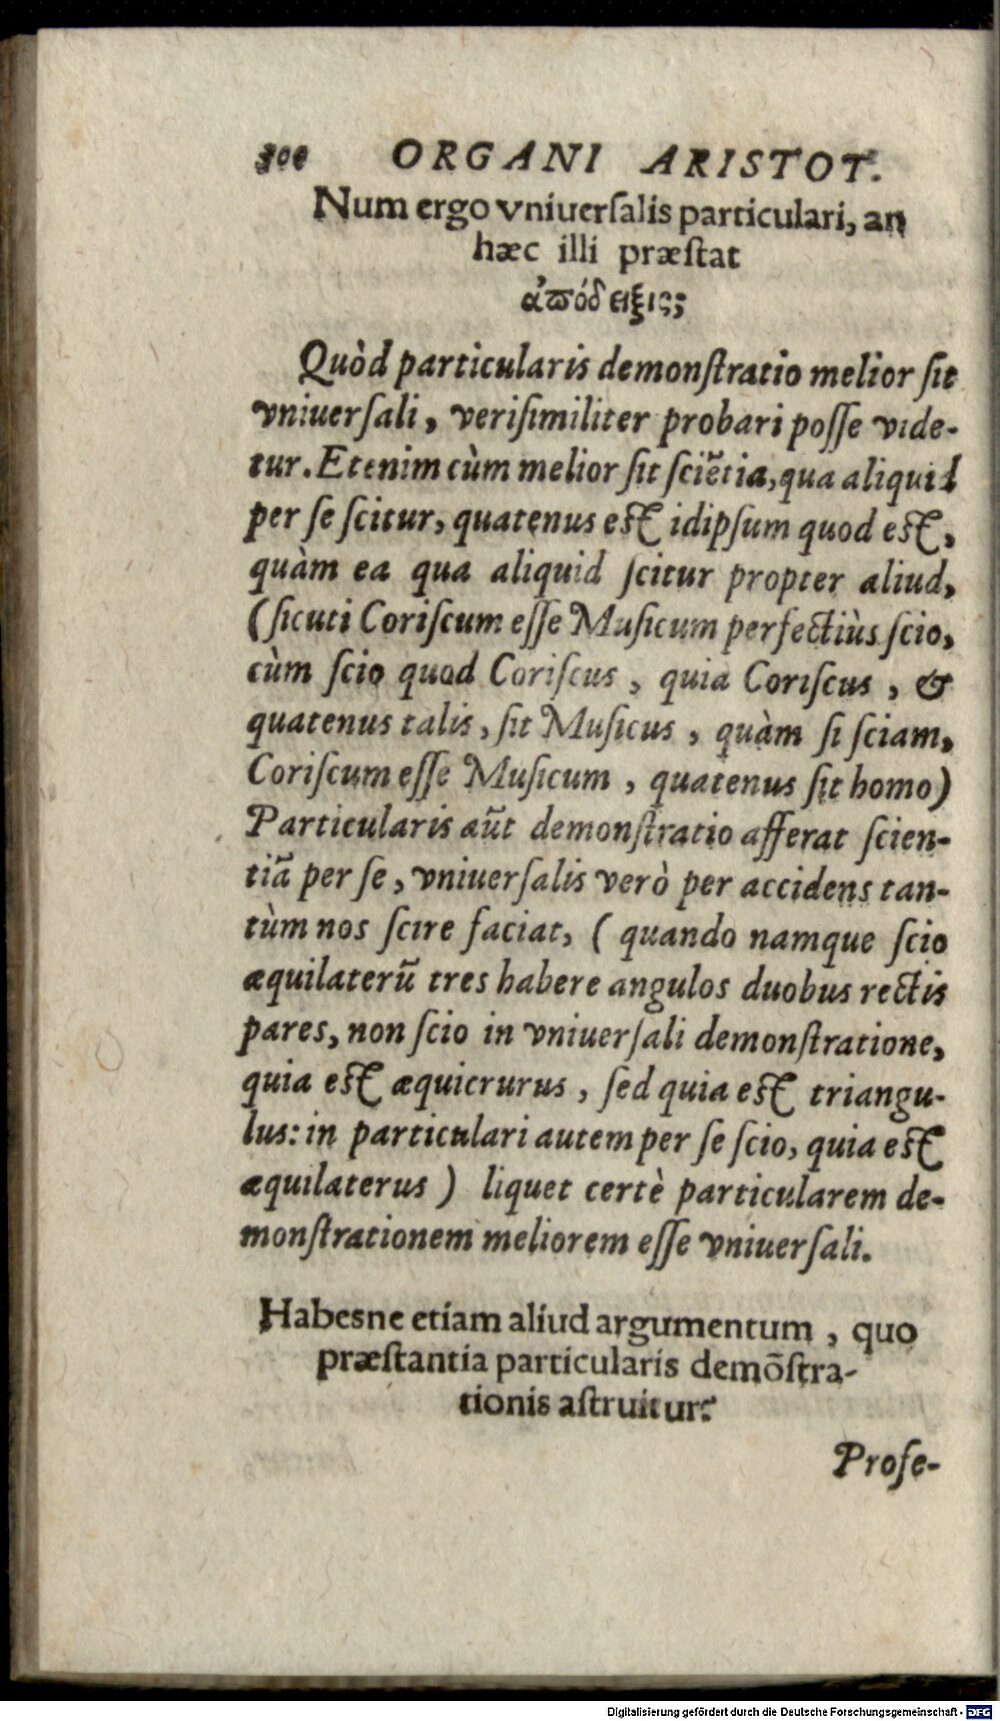 300 ORGANI ARISTOT.
Num ergo vniuerſalis particulari, an
hæc illi præſtat
ἀπόδειξις;
Quòd particularis demonſtratio melior ſit
vniuerſali, veriſimiliter probari poſſe vide-
tur. Etenim cùm melior ſit ſciẽtia, qua aliquid
per ſe ſcitur, quatenus eſt idipſum quod eſt,
quàm ea qua aliquid ſcitur propter aliud,
(ſicuti Coriſcum eſſe Muſicum perfectiùs ſcio,
cùm ſcio quod Coriſcus, quia Coriſcus, &
quatenus talis, ſit Muſicus, quàm ſi ſciam,
Coriſcum eſſe Muſicum, quatenus ſit homo)
Particularis aũt demonſtratio afferat ſcien-
tiã per ſe, vniuerſalis verò per accidens tan-
tùm nos ſcire faciat, (quando namque ſcio
æquilaterũ tres habere angulos duobus rectis
pares, non ſcio in vniuerſali demonſtratione,
quia eſt æquicrurus, ſed quia eſt triangu-
lus: in particulari autem per ſe ſcio, quia eſt
æquilaterus) liquet certè particularem de-
monſtrationem meliorem eſſe vniuerſali.
Habesne etiam aliud argumentum, quo
præſtantia particularis demõſtra-
tionis aſtruitur?
Profe-
Digitalisierung gefördert durch die Deutsche Forschungsgemeinschaft - DFG